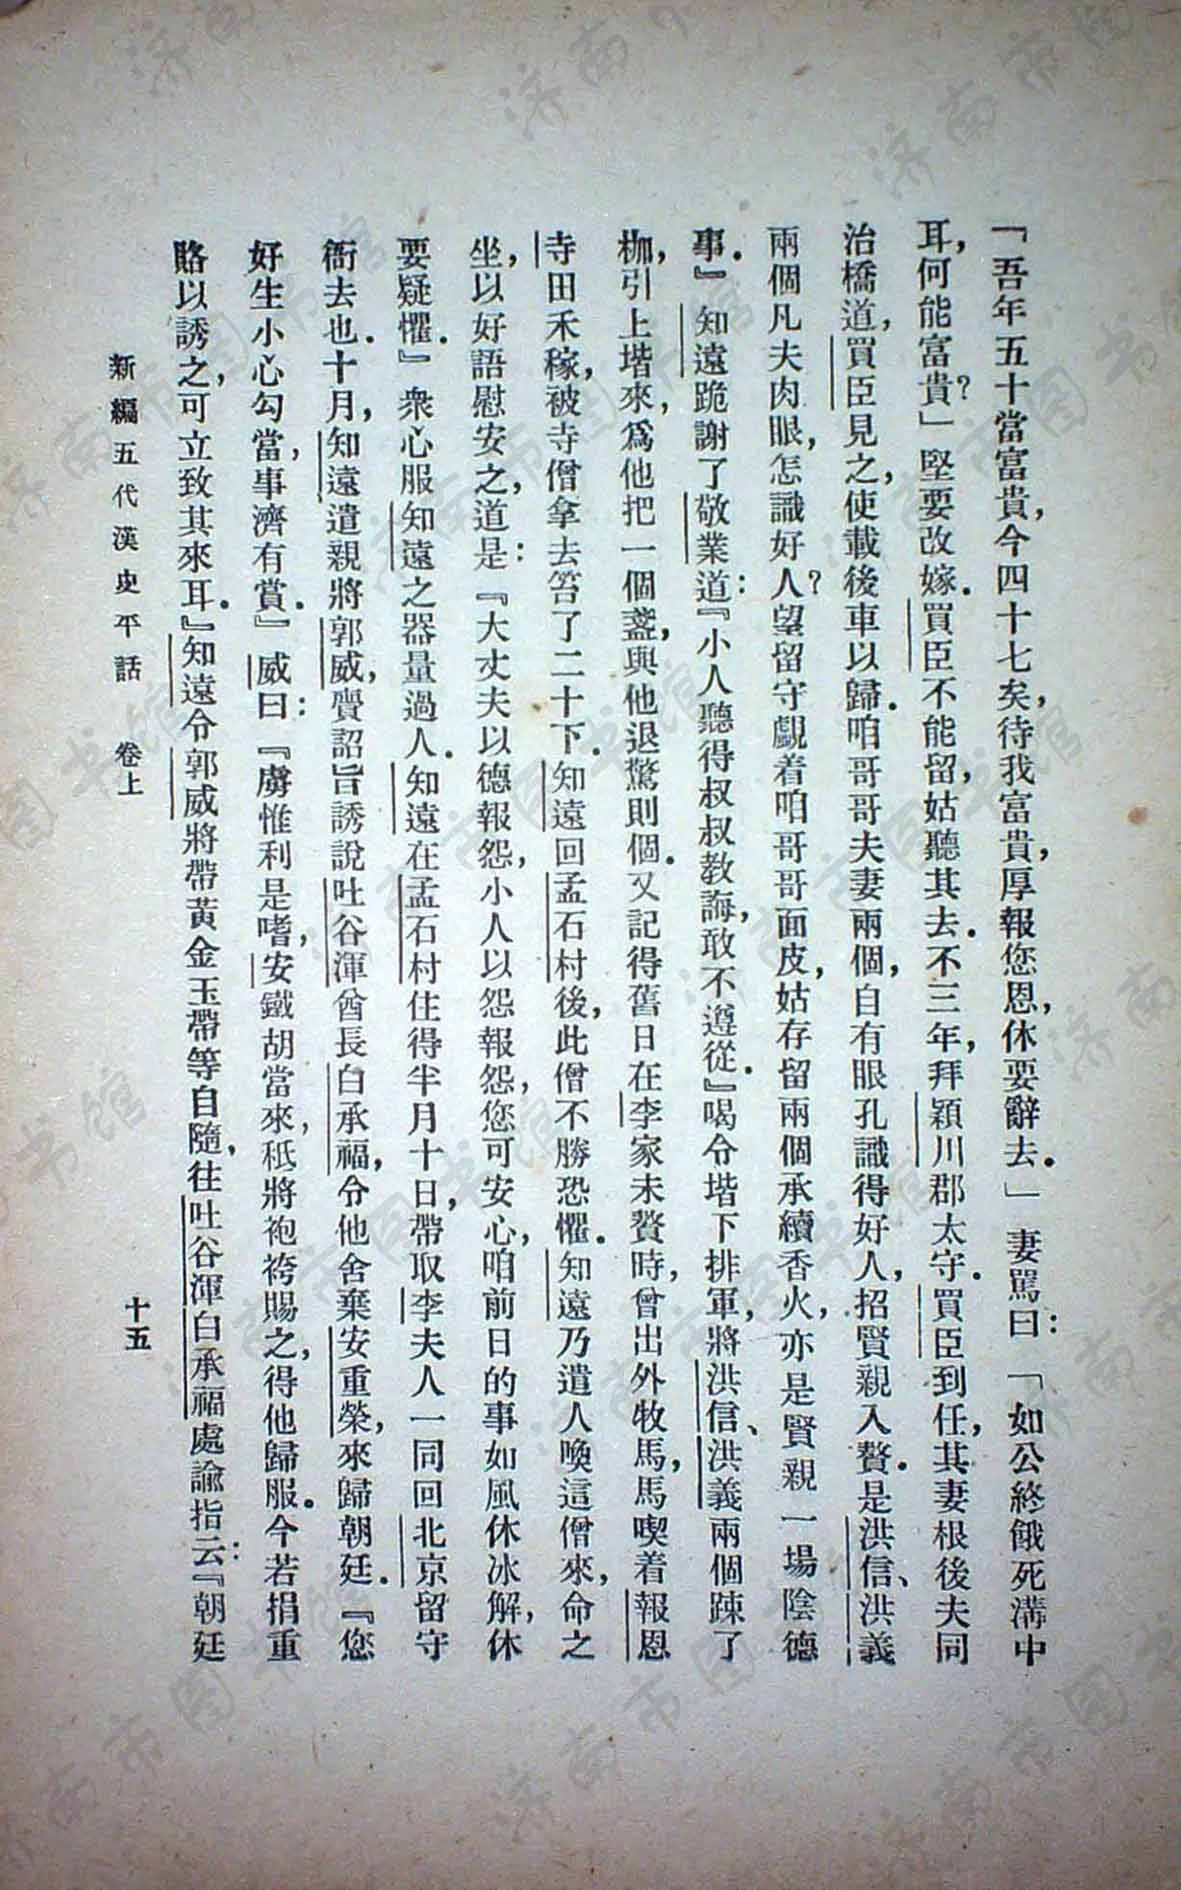 「吾年五十當富貴，今四十七矣，待我富貴，厚報您恩，休要辭去．」妻罵曰：「如公終餓死溝中
耳，何能富貴？」堅要改嫁．買臣不能留，姑聽其去．不三年，拜潁川郡太守．買臣到任，其妻根後夫同
治橋道，買臣見之，使載後車以歸．咱哥哥夫妻兩個，自有眼孔識得好人，招賢親入贅．是洪信、洪義
兩個凡夫肉眼，怎識好人？望留守覷着咱哥哥面皮，姑存留兩個承續香火，亦是賢親一場陰德
事．』知遠跪謝了敬業道：『小人聽得叔叔教誨，敢不遵從．』喝令堦下排軍，將洪信、洪義兩個踈了
枷，引上堦來，爲他把一個盞，與他退驚則個．又記得舊日在李家未贅時，曾出外牧馬，馬喫着報恩
寺田禾稼，被寺僧拿去笞了二十下．知遠回孟石村後，此僧不勝恐懼．知遠乃遣人喚這僧來，命之
坐，以好語慰安之，道是：『大丈夫以德報怨，小人以怨報怨，您可安心，咱前日的事如風休冰解，休
要疑懼．』衆心服知遠之器量過人．知遠在孟石村住得半月十日，帶取李夫人一同回北京留守
衙去也．十月，知遠遣親將郭威，賫詔旨誘說吐谷渾酋長白承福，令他舍棄安重榮，來歸朝廷．『您
好生小心勾當，事濟有賞．』威曰：『虜惟利是嗜，安鐵胡當來，秖將袍袴賜之，得他歸服．今若捐重
賂以誘之，可立致其來耳．』知遠令郭威將帶黃金玉帶等自隨，往吐谷渾白承福處諭指云：『朝廷
新編五代漢史平話　卷上
十五
济南市图书馆